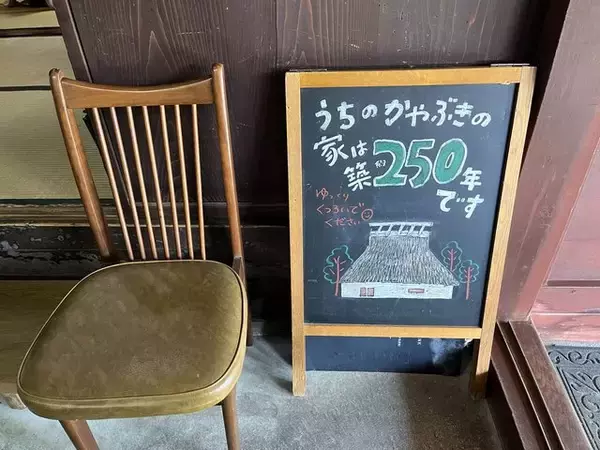 うちのかやぶきの
家は
築約250年
です
ゆっくり
くつろいで
ください